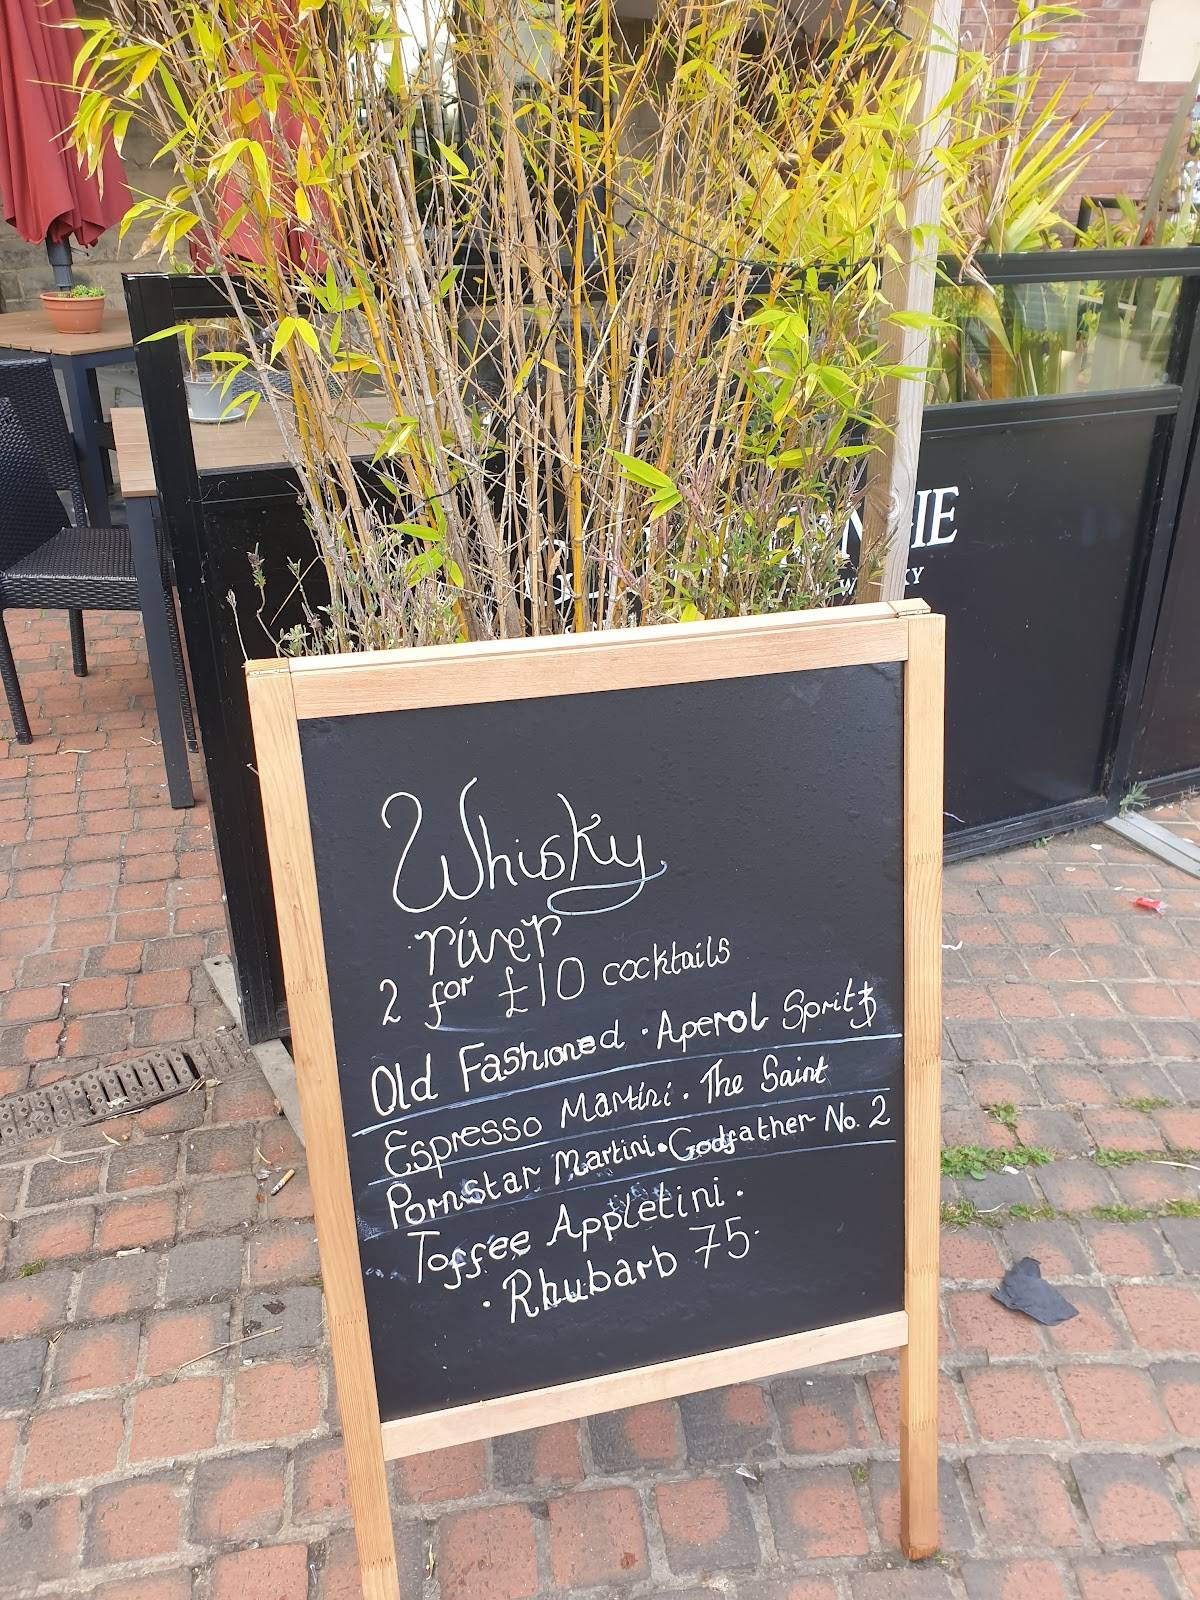 Whisky
river
2 for £10 cocktails
Old Fashioned · Aperol Spritz
Espresso Martini · The Saint
Pornstar Martini · Godfather No. 2
Toffee Appletini ·
· Rhubarb 75 ·